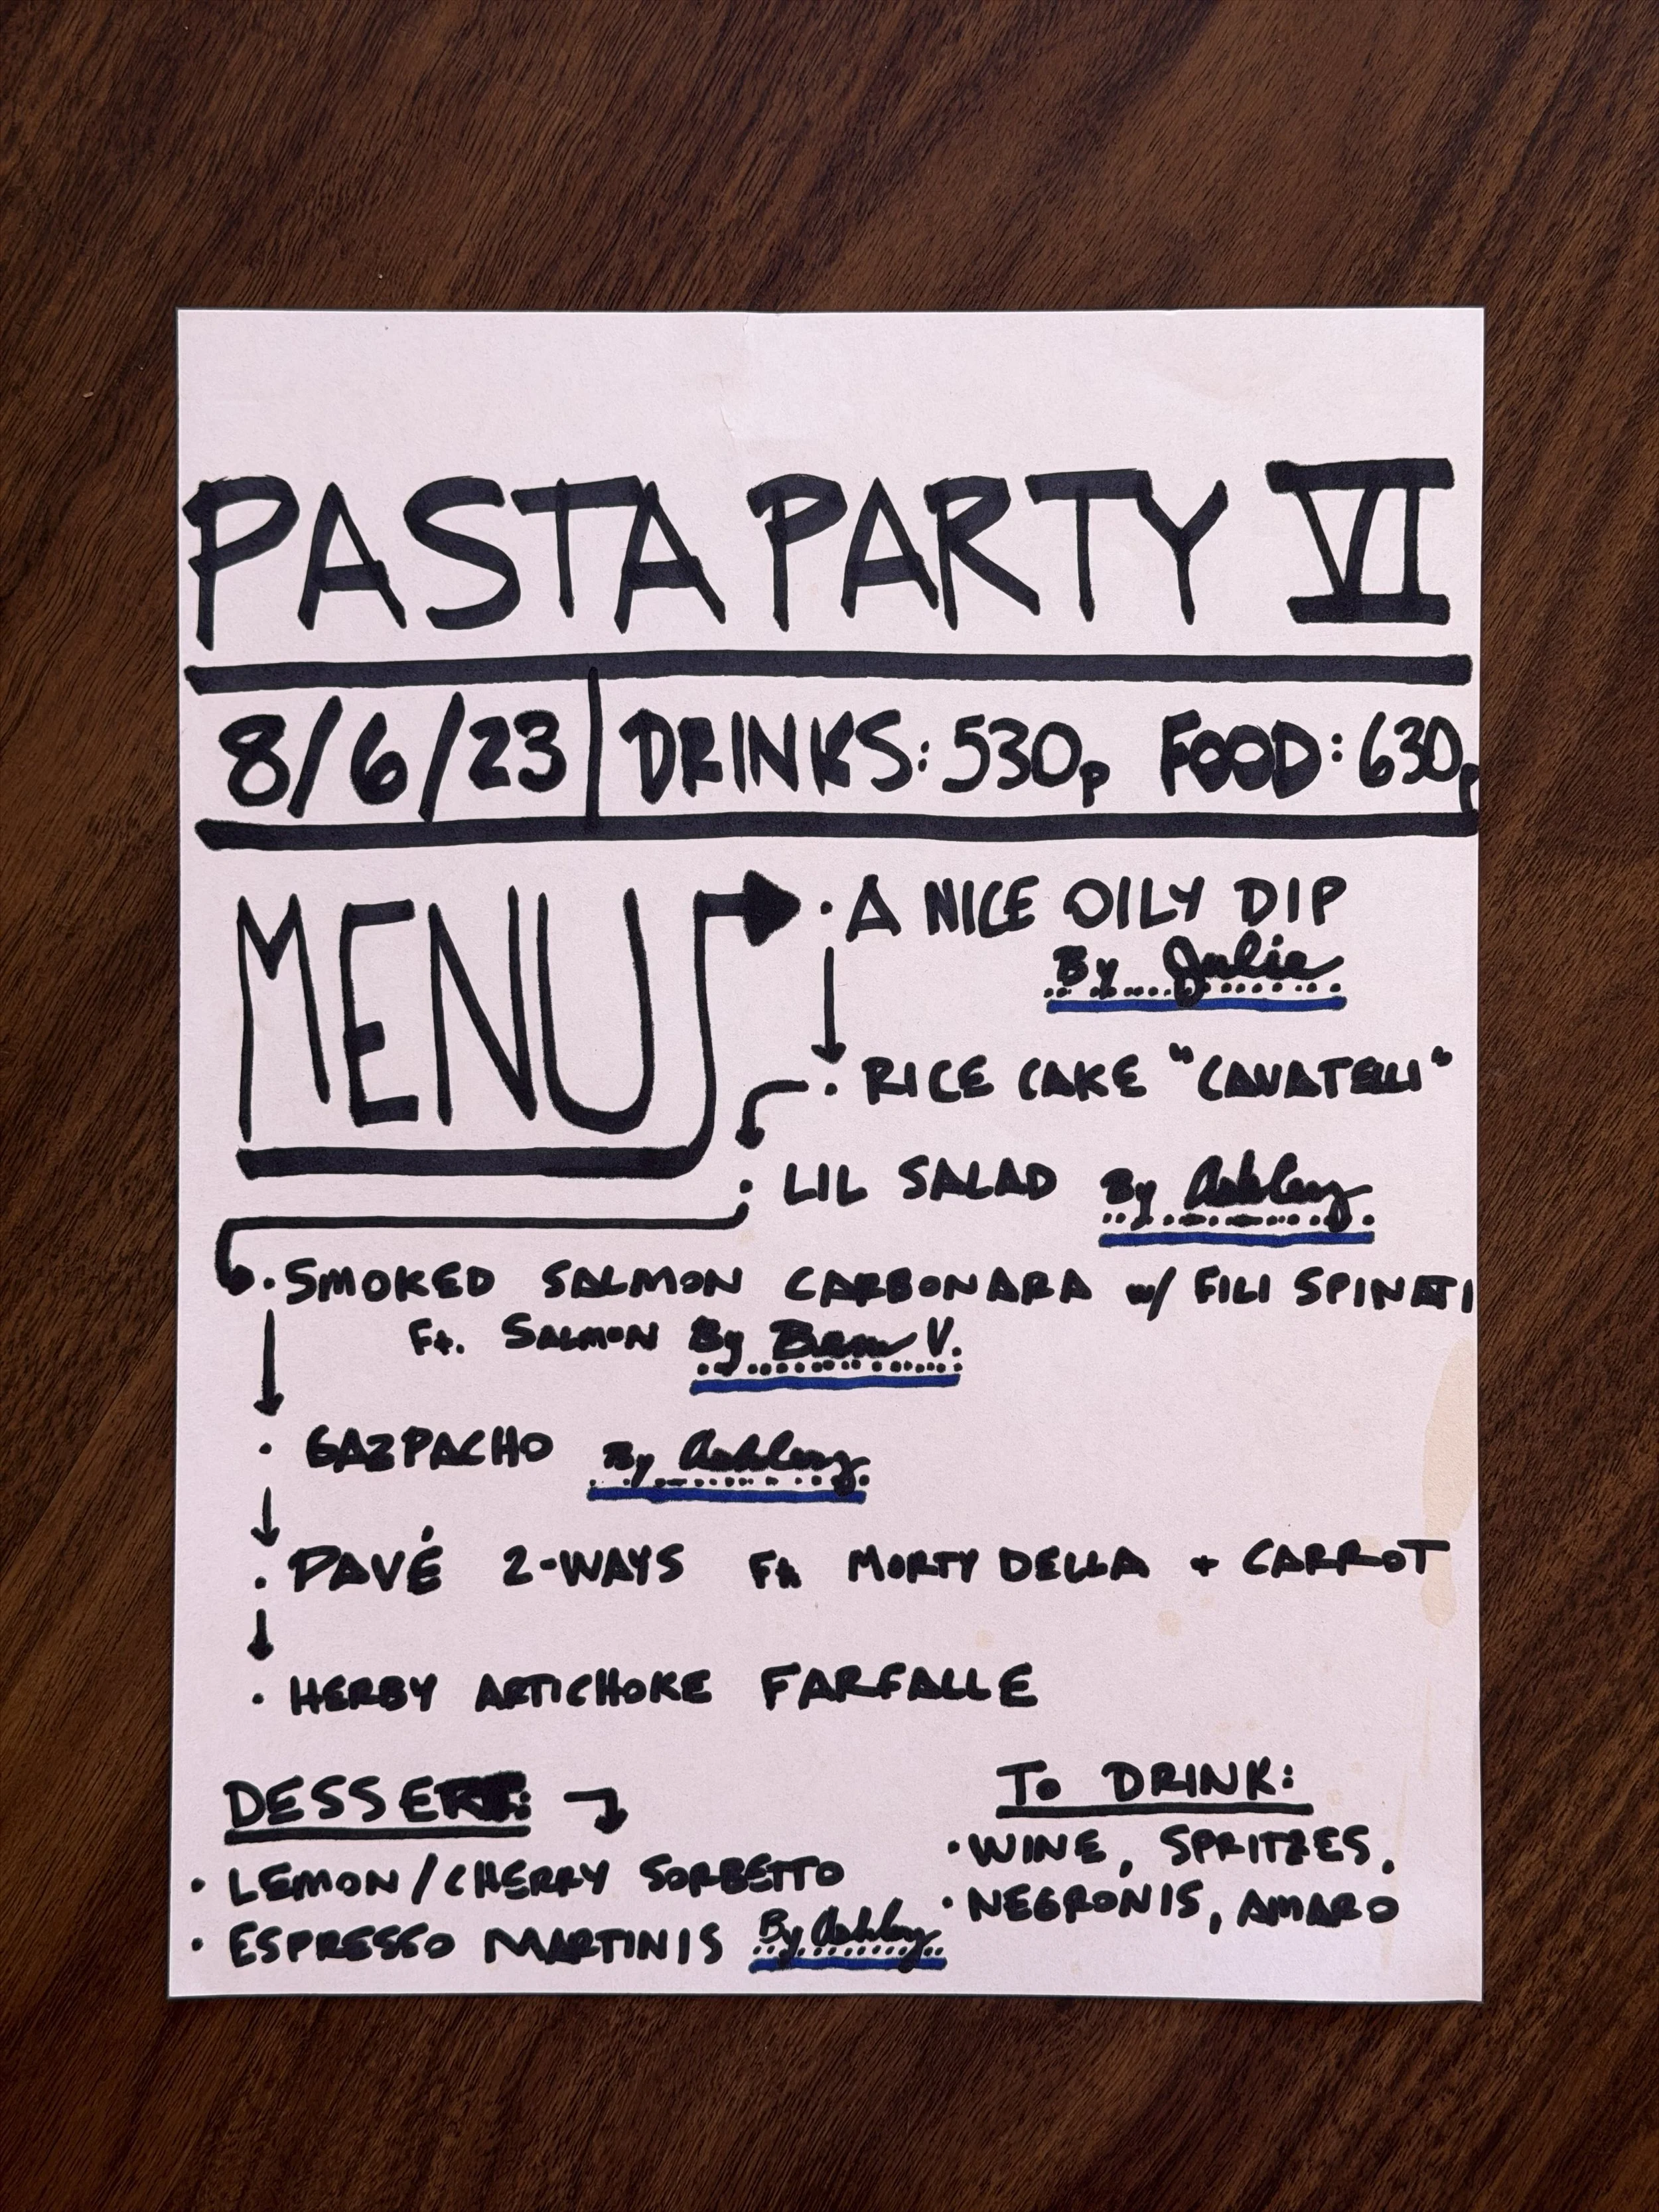 PASTA PARTY VI
8/6/23 | DRINKS: 530p FOOD: 630p
MENU
· A NICE OILY DIP
By Julie
· RICE CAKE "CAVATELLI"
· LIL SALAD By Ashley
· SMOKED SALMON CARBONARA w/ FILI SPINATI
Ft. SALMON By V.
· GAZPACHO By Ashley
· PAVÉ 2-WAYS Ft. MORTY DELLA + CARROT
· HERBY ARTICHOKE FARFALLE
DESSERT:
· LEMON/CHERRY SORBETTO
· ESPRESSO MARTINIS By Ashley
TO DRINK:
· WINE, SPRITZES,
· NEGRONIS, AMARO